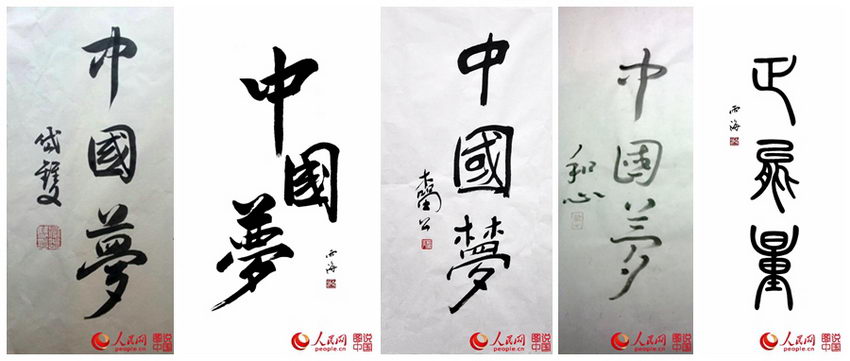 中國夢
人民网
people.cn
图说中国
中國夢
人民网
people.cn
图说中国
中國梦
人民网
people.cn
图说中国
中國夢
和心
人民网
people.cn
图说中国
正能量
人民网
people.cn
图说中国